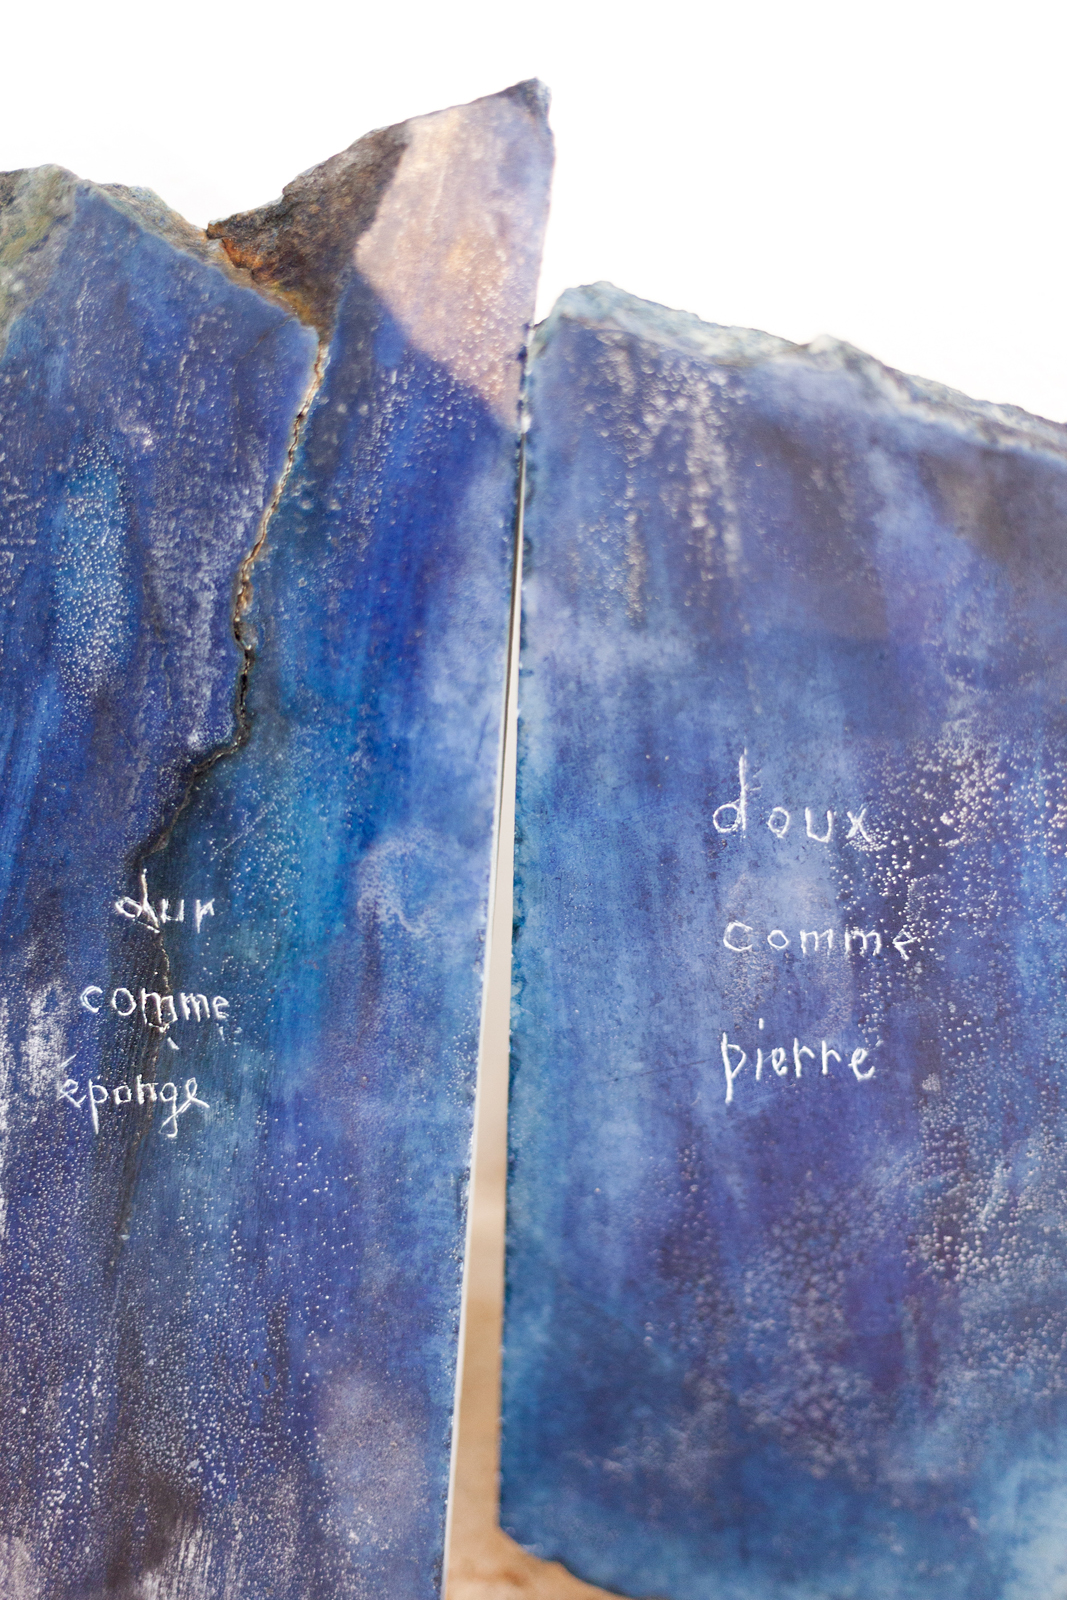 dur
comme
éponge
doux
comme
pierre